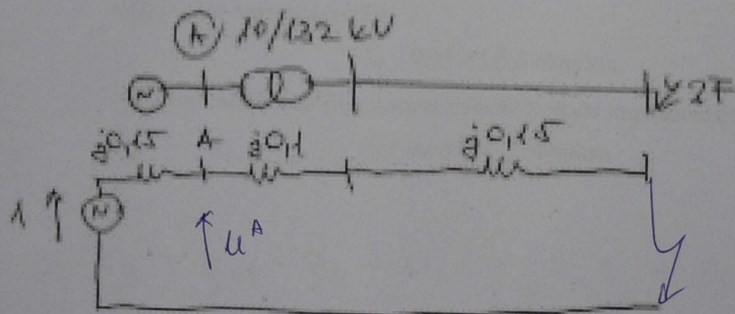 A 10/132 kV
2F
j0,15 A j0,1 j0,15
1
u^A